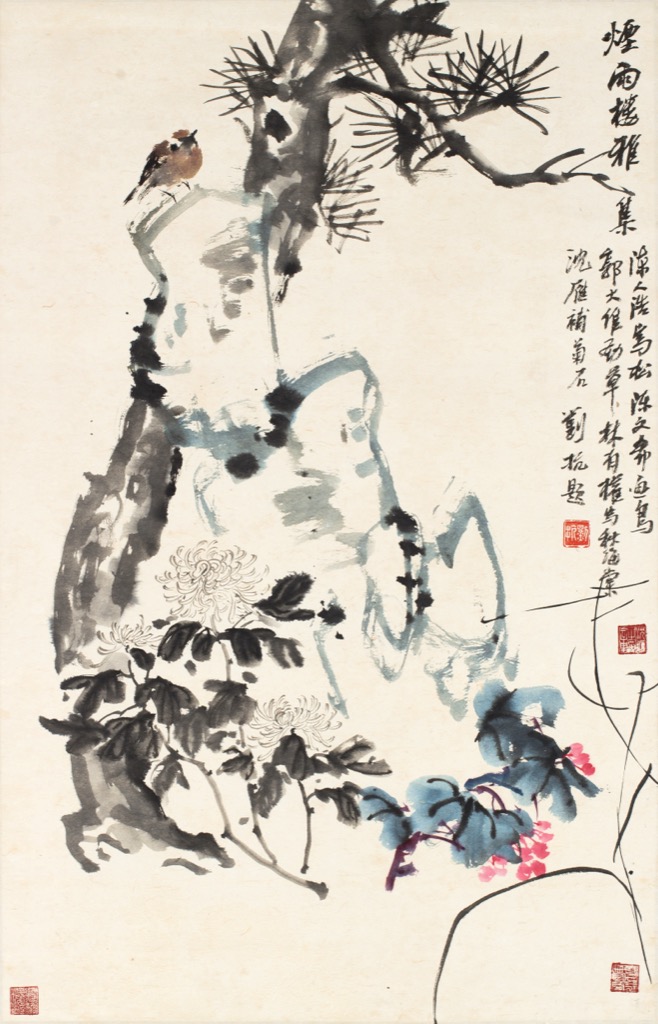 煙雨樓雅集
陳人浩寫松陳文希画鳥
郭大維勁草林有權寫秋海棠
沈雁補菊石 劉抗題